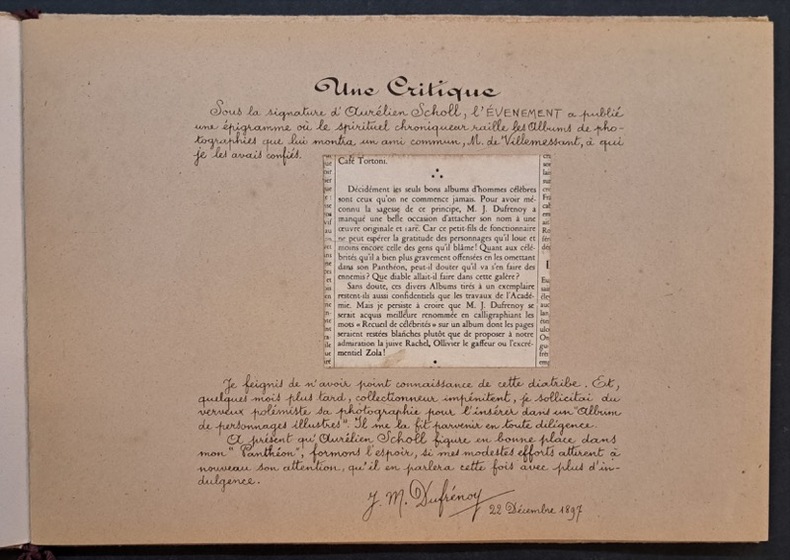 Une Critique
Sous la signature d'Aurélien Scholl, l'ÉVENEMENT a publié
une épigramme où le spirituel chroniqueur raille les Albums de pho-
tographies que lui montra un ami commun, M. de Villemessant, à qui
je les avais confiés.
Café Tortoni.
Décidément les seuls bons albums d'hommes célèbres
sont ceux qu'on ne commence jamais. Pour avoir mé-
connu la sagesse de ce principe, M. J. Dufrenoy a
manqué une belle occasion d'attacher son nom à une
œuvre originale et rare. Car ce petit-fils de fonctionnaire
ne peut espérer la gratitude des personnages qu'il loue et
moins encore celle des gens qu'il blâme! Quant aux célé-
brités qu'il a bien plus gravement offensées en les omettant
dans son Panthéon, peut-il douter qu'il va s'en faire des
ennemis? Que diable allait-il faire dans cette galère?
Sans doute, ces divers Albums tirés à un exemplaire
restent-ils aussi confidentiels que les travaux de l'Acadé-
mie. Mais je persiste à croire que M. J. Dufrenoy se
serait acquis meilleure renommée en calligraphiant les
mots « Recueil de célébrités » sur un album dont les pages
seraient restées blanches plutôt que de proposer à notre
admiration la juive Rachel, Ollivier le gaffeur ou l'excré-
mentiel Zola!
Je feignis de n'avoir point connaissance de cette diatribe. Et,
quelques mois plus tard, collectionneur impénitent, je sollicitai du
verveux polémiste sa photographie pour l'insérer dans un "Album
de personnages illustres". Il me la fit parvenir en toute diligence.
A présent qu'Aurélien Scholl figure en bonne place dans
mon "Panthéon", formons l'espoir, si mes modestes efforts attirent à
nouveau son attention, qu'il en parlera cette fois avec plus d'in-
dulgence.
J. M. Dufrénoy
22 Décembre 1897